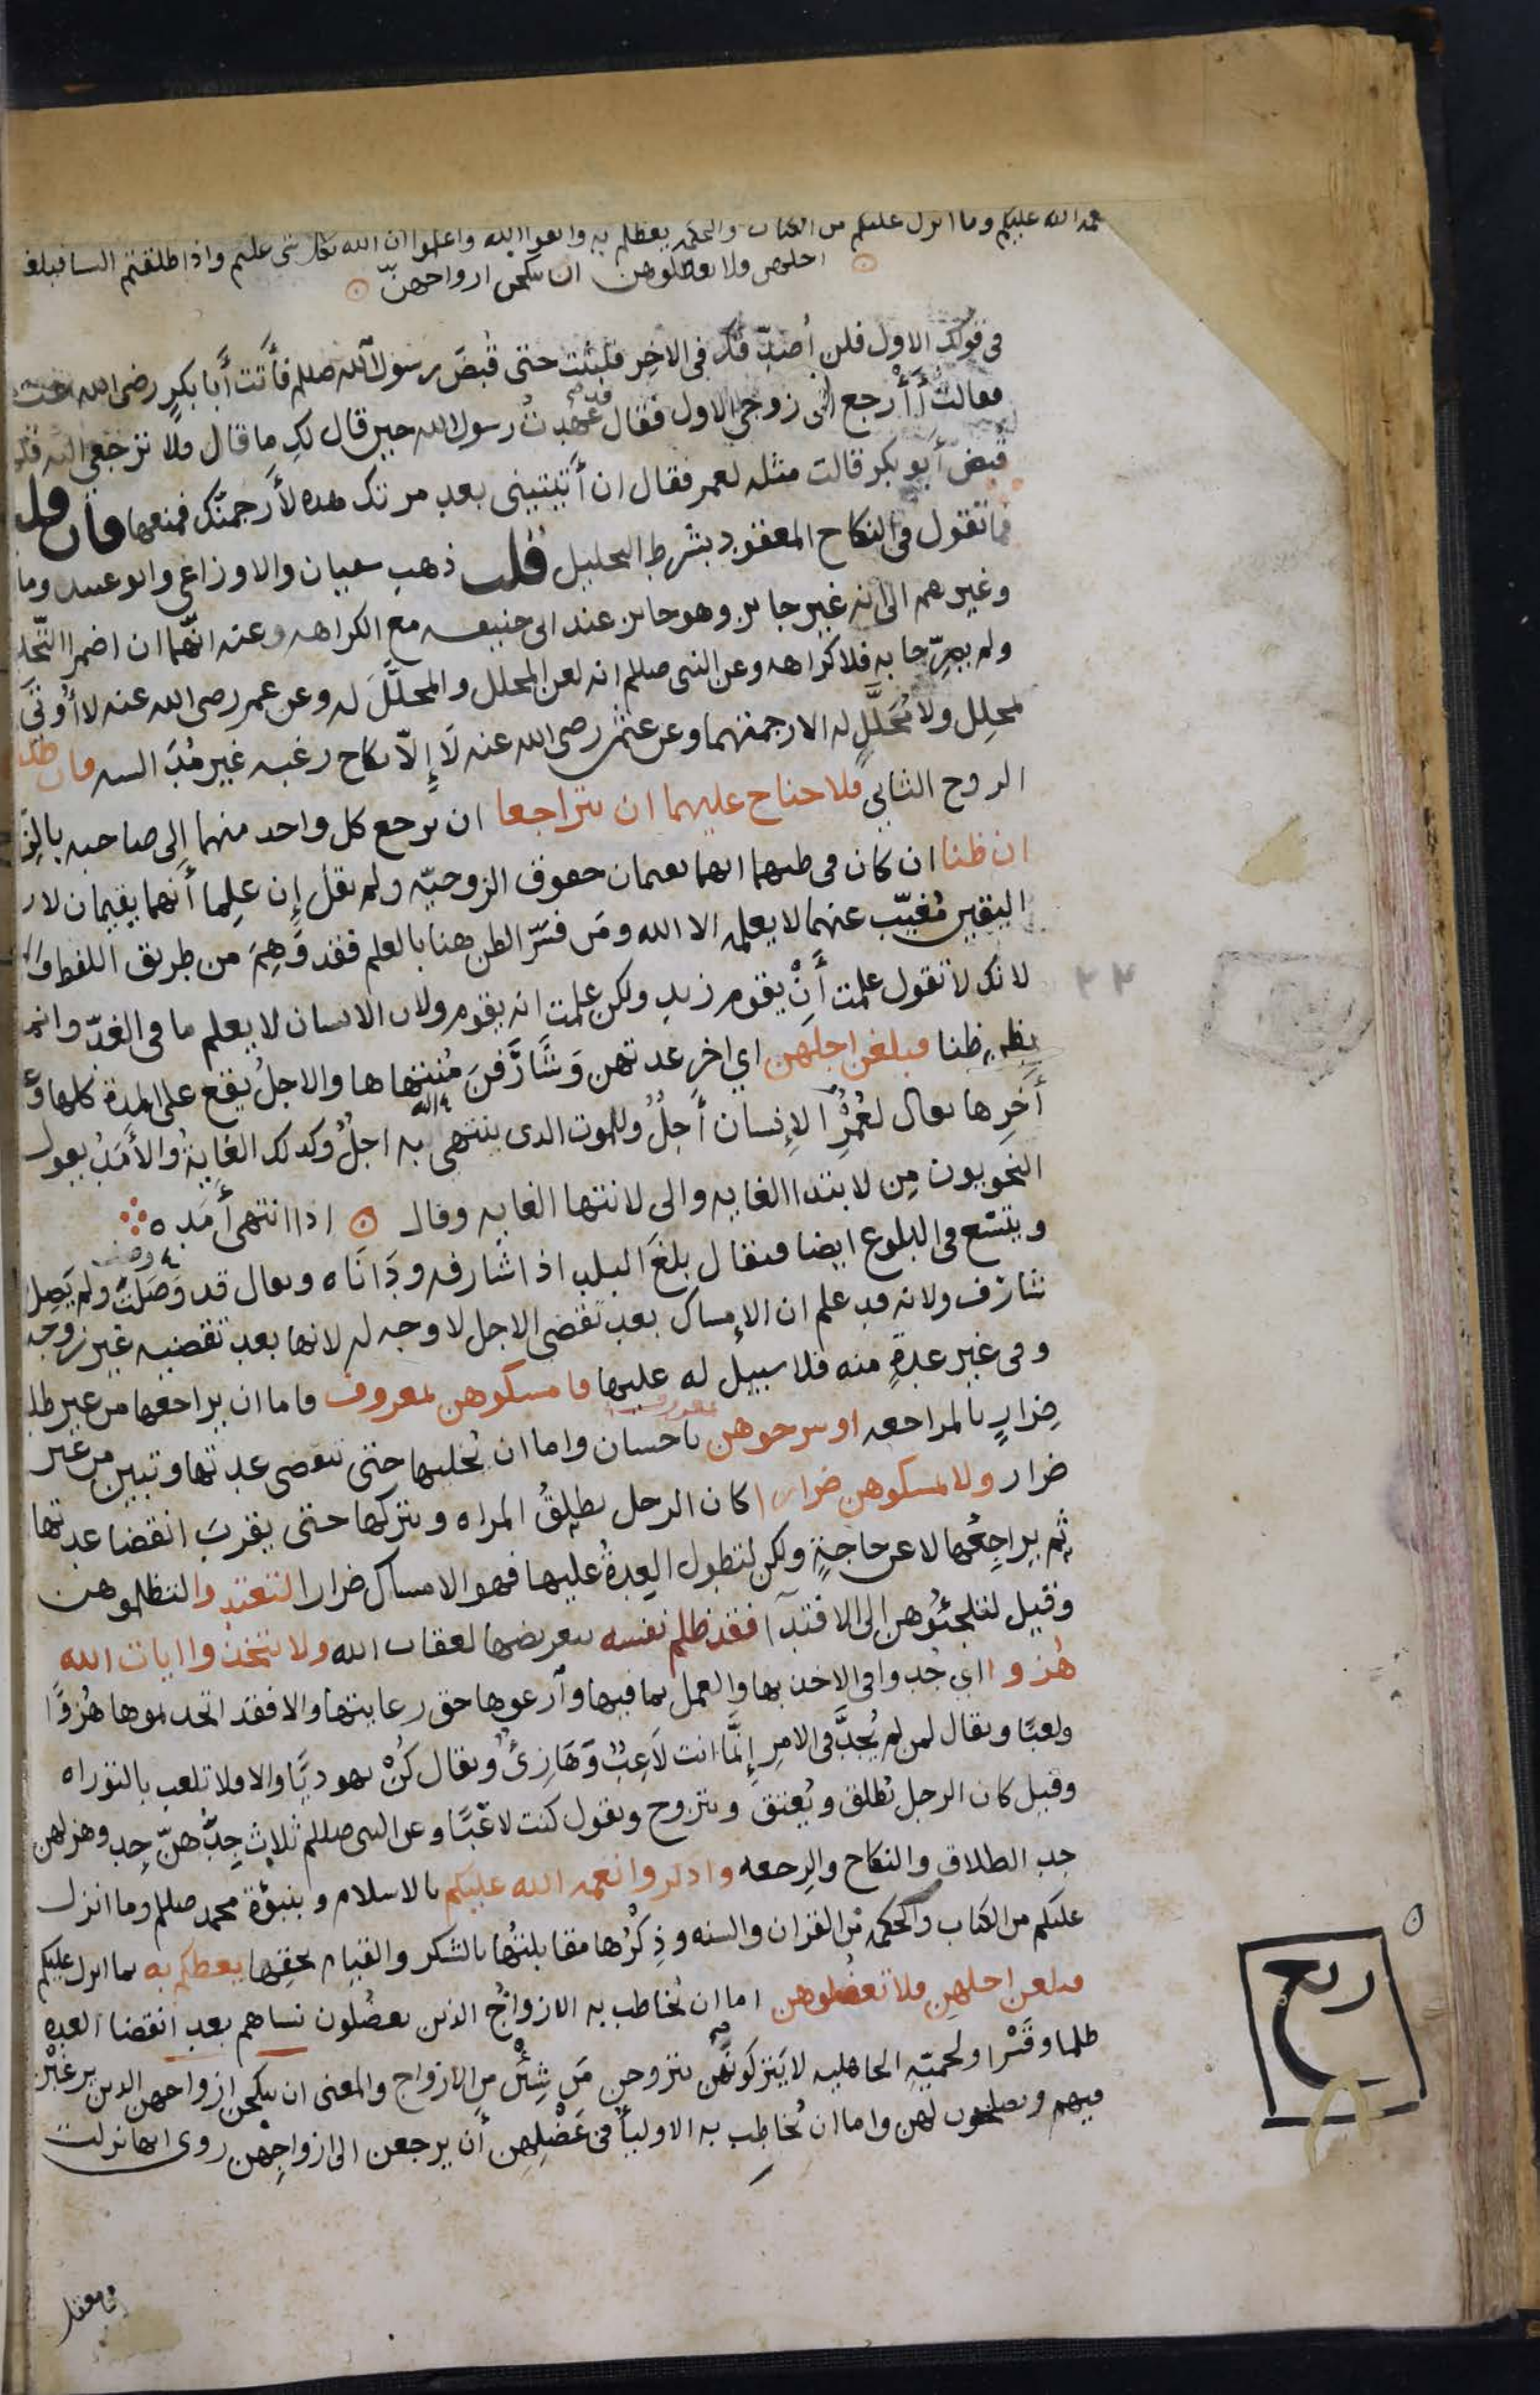 نعمه الله عليكم وما انزل عليكم من الكتاب والحكمه يعظكم به واتقوا الله واعلموا ان الله بكل شى عليم واذا طلقتم النسا فبلغن
اجلهن ولا تعضلوهن ان ينكحن ازواجهنّ
فى قولك الاول فلن أُصدّقك فى الآخِر فلبثت حتى قُبضَ رسول الله صللم فأتت أبا بكر رضى الله عنه
فقالت أَأَرجع الى زوجى الاول فقال قد عَهِدتُ رسول الله حين قال لكِ ما قال فلا ترجعى اليه فلما
قبض أبو بكر قالت مثله لعمر فقال ان أتيتينى بعد مرتك هذه لأرجمنّك فمنعها فان قلت
فما تقول فى النكاح المعقود بشرط التحليل قلت ذهب سفيان والاوزاعى وابو عبيد وما
وغيرهم الى انه غير جايز وهو جايز عند ابى حنيفه مع الكراهه وعنه انّهما ان اضمرا التحليل
ولم يصرّحا به فلا كراهه وعن النبى صللم انه لعن المحلل والمحلَّلَ له وعن عمر رضى الله عنه لا أُوتَى
بمحلِل ولا مُحَلَّلٍ له الا رجمتهما وعن عثمن رضى الله عنه لَا إِلّا نكاح رغبه غير مُدَ السه فان طلقها
الزوج الثانى فلا جناح عليهما ان يتراجعا ان يرجع كل واحد منهما إلى صاحبه بالزواج
ان ظنا ان كان فى ظنهما انهما يقيمان حقوق الزوجيّه ولم يقل إن علِما أنهما يقيمان لان
اليقين مُغيّب عنهما لا يعلمه الا الله ومَن فسّر الظن هنا بالعلم فقد وَهِمَ من طريق اللفظ والمعنى
لانك لا تقول علمت أَنْ يقوم زيد ولكن علمت انه يقوم ولان الانسان لا يعلم ما فى الغدّ وانما
يظن ظنا فبلغن اجلهن اي اخر عدتهن وَشَارَفنَ مُنتهاها والاجلُ يقع على المدة كلها وعلى
أَخِرها يقال لعُمُرِ الإنسان أَجلٌ وللموت الذى ينتهى به اجلٌ وكذلك الغَايةُ والأمَدُ يقول
النحويون مِن لابتدا الغايه والى لانتها الغايه وقال اذا انتهى أَمَدُه
ويتّسع فى البلوغ ايضا فيقال بلغَ البلد اذ اشارفه ودَانَاه ويقال قد وَصَلْتَ ولم يَصِل
شارف ولانه قد علم ان الإمساك بعد تقضى الاجل لا وجه له لانها بعد تقضيه غير زوجه
وفى غير عدةٍ منه فلا سبيل له عليها فامسكوهن بمعروف فاما ان يراجعها من غير طلب
ضِرارٍ بالمراجعه او سرحوهن بمعروف باحسان واما ان يُخليها حتى تنقضى عدتها وتبين من غير
ضرار ولا تمسكوهن ضرارا كان الرجل يطلِقُ المراه ويتركها حتى يقربَ انقضا عدتها
ثم يراجِعُها لا عن حاجةٍ ولكن لتطول العِدةُ عليها فهو الامساك ضرارا لتعتدوا لتظلموهن
وقيل لتُلجئُوهن الى الافتدآ فقد ظلم نفسه بتعريضها لعقاب الله ولا تتخذوا ايات الله
هُزوا اي جُدوا فى الاخذ بها والعمل بما فيها وآرعوها حق رعايتها والا فقد اتخذتموها هُزوًا
ولعبًا ويقال لمن لم يُجدَّ فى الامرِ إنَّما انت لاَعِبٌ وَهَازِئٌ ويقال كُنْ يهوديًا والا فلا تلعب بالتوراه
وقيل كان الرجل يُطلق ويُعتق ويتزوج ويقول كنت لاعبًا وعن النبى صللم ثلاث جِدُّهنّ جِد وهزلهن
جد الطلاق والنكاح والرجعه واذكروا نعمه الله عليكم بالاسلام وبنبوّة محمد صللم وما انزل
عليكم من الكتاب والحكمه من القران والسنه وذِكْرُها مقابلتُها بالشكر والقيام بحقِها يعظكم به بما انزل عليكم
فبلغن اجلهن فلا تعضُلوهن اما ان يُخاطب به الازواجُ الذين يعضُلون نساهم بعد انقضا العده
ظلما وقَسْرا ولحميّةِ الجاهليه لا يَتركُونهُنّ يتزوجن مَن شِئْنَ من الازواج والمعنى ان ينكحن ازواجهن الذين يرغبْنَ
فيهم ويصلحون لهن واما ان يُخاطب به الاوليآ فى عَضْلِهِن أن يرجعن الى ازواجِهن روى انها نزلت
فى معقل
ربع
٢٢